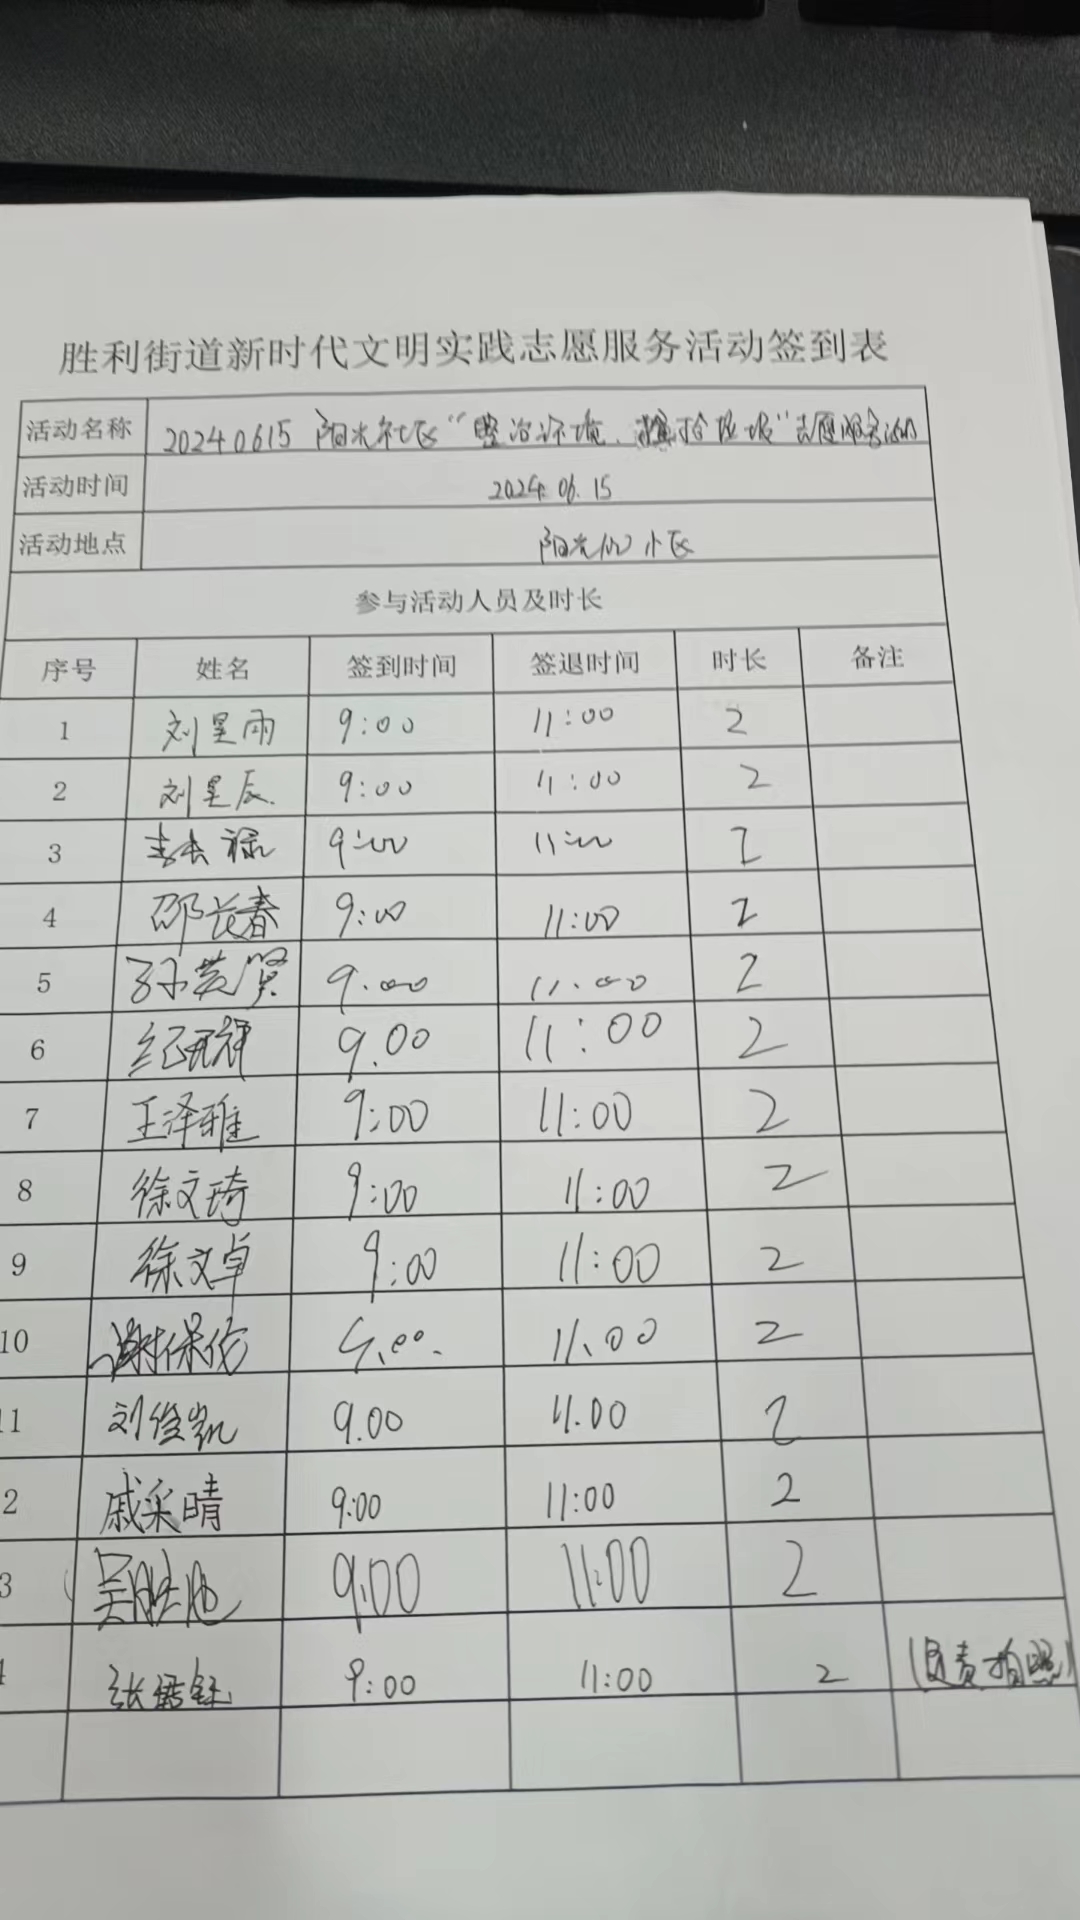 胜利街道新时代文明实践志愿服务活动签到表
活动名称 20240615 阳光社区“整治环境、捡拾垃圾”志愿服务活动
活动时间 2024.06.15
活动地点 阳光 小区
参与活动人员及时长
序号 姓名 签到时间 签退时间 时长 备注
1 刘星雨 9:00 11:00 2
2 刘星辰 9:00 11:00 2
3 李长禄 9:00 11:00 2
4 邵长春 9:00 11:00 2
5 孙英贤 9:00 11:00 2
6 9.00 11:00 2
7 王泽雅 9:00 11:00 2
8 徐文琦 9:00 11:00 2
9 徐文卓 9:00 11:00 2
10 谢保 9.00 11.00 2
11 刘俊凯 9.00 11.00 2
2 戚采晴 9:00 11:00 2
3 吴胜 9:00 11:00 2
4 张 9:00 11:00 2 (负责拍照)